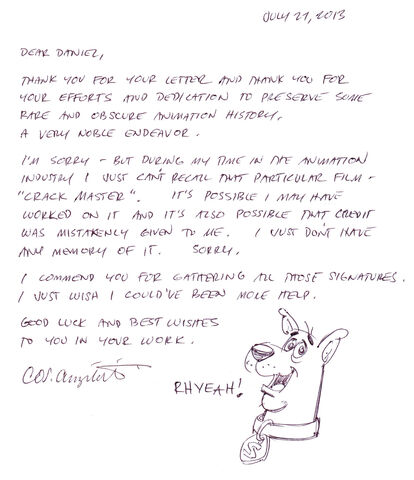 JULY 27, 2013
DEAR DANIEL,
THANK YOU FOR YOUR LETTER AND THANK YOU FOR
YOUR EFFORTS AND DEDICATION TO PRESERVE SOME
RARE AND OBSCURE ANIMATION HISTORY,
A VERY NOBLE ENDEAVOR.
I'M SORRY - BUT DURING MY TIME IN THE ANIMATION
INDUSTRY I JUST CAN'T RECALL THAT PARTICULAR FILM -
"CRACK MASTER". IT'S POSSIBLE I MAY HAVE
WORKED ON IT AND IT'S ALSO POSSIBLE THAT CREDIT
WAS MISTAKENLY GIVEN TO ME. I JUST DON'T HAVE
ANY MEMORY OF IT. SORRY.
I COMMEND YOU FOR GATHERING ALL THOSE SIGNATURES.
I JUST WISH I COULD'VE BEEN MORE HELP.
GOOD LUCK AND BEST WISHES
TO YOU IN YOUR WORK.
RHYEAH!